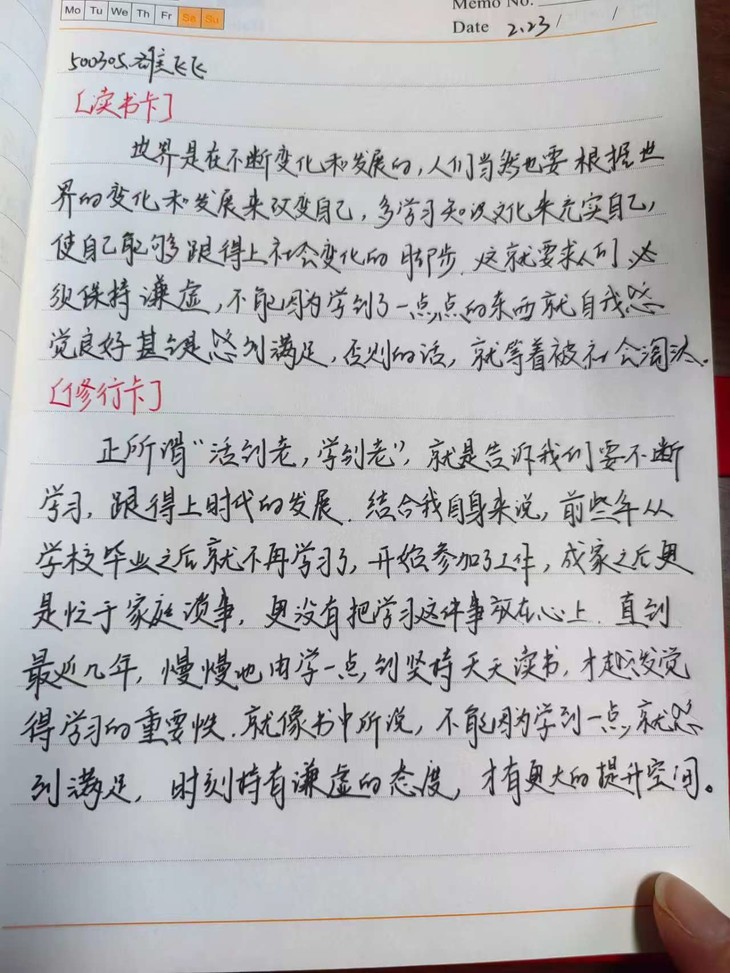 Mo Tu We Th Fr Sa Su
Memo No.
Date 2.23 / /
500305.雒飞飞
[读书卡]
世界是在不断变化和发展的,人们当然也要根据世
界的变化和发展来改变自己,多学习知识文化来充实自己,
使自己能够跟得上社会变化的脚步.这就要求人们必
须保持谦虚,不能因为学到了一点点的东西就自我感
觉良好甚至是感到满足,否则的话,就等着被社会淘汰。
[修行卡]
正所谓“活到老,学到老”,就是告诉我们要不断
学习,跟得上时代的发展.结合我自身来说,前些年从
学校毕业之后就不再学习了,开始参加了工作,成家之后更
是忙于家庭琐事,更没有把学习这件事放在心上.直到
最近几年,慢慢地由学一点,到坚持天天读书,才越发觉
得学习的重要性.就像书中所说,不能因为学到一点,就感
到满足,时刻持有谦虚的态度,才有更大的提升空间。